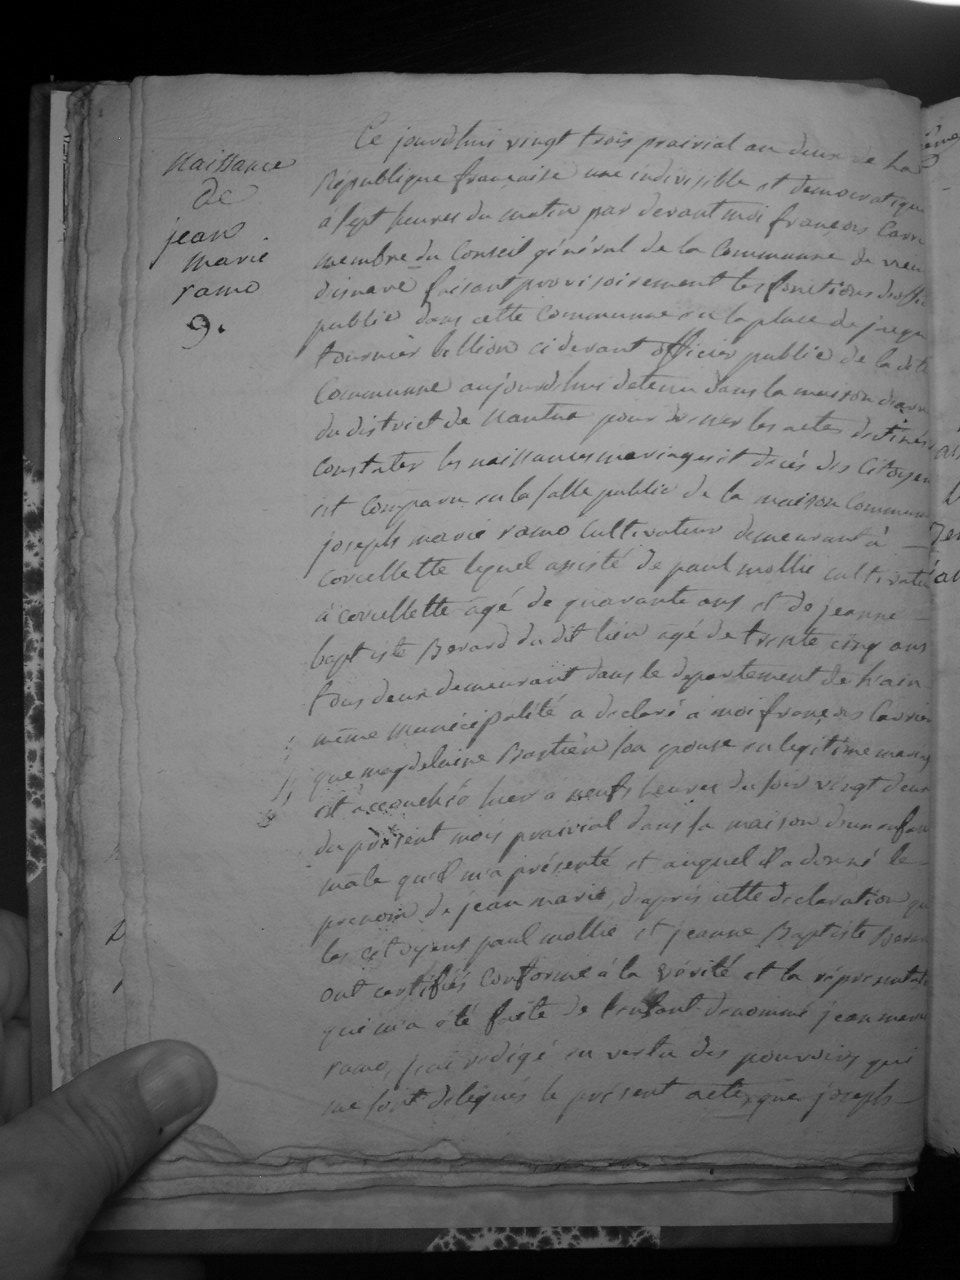 naissance
de
jean
marie
ramo
9.
Ce jourdhui vingt trois prairial an deux de La
Republique francaise une indivisible et democratique
a sept heures du matin par devant moi françois Carri
membre du Conseil général de la Commune de vieu
disnave faisant provisoirement les fonctions doffic
public dans cette Commune en la place de jacque
tournier billion ci devant officier public de la dite
Commune aujourdhui detenu dans la maison darre
du district de nantua pour dresser les actes destinés
Constater les naissances mariages et décés des Citoyen
est comparu en la salle public de la maison Commune
joseph marie ramo cultivateur demeurant à
corcellette lequel assisté de paul mollie cultivate
à corcellette agé de quarante ans et de jeanne
baptiste Berard du dit lieu agé de trente cinq ans
tous deux demeurant dans le departement de l'ain
même municipalité a declaré a moi françois Carrier
que magdelaine Bastien son epouse en legitime mariag
est accouchéé hier a neufs heures du soir vingt deux
du présent mois prairial dans sa maison d'un enfan
male quil m'a présenté et auquel il a donné le
prenom de jean marie, d'aprés cette declaration que
les citoyens paul mollie et jeanne Baptiste Berar
ont certifiés conforme à la vérité et la réprésentati
qui m'a été faite de l'enfant denommé jean marie
ramo, j'ai redigé en vertu des pouvoirs qui
me sont delegués le présent acte, que joseph